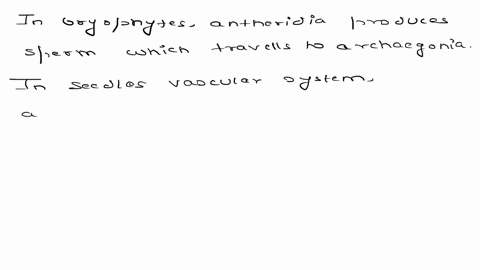 In bryophytes, antheridia produces
sperm which travells to archaegonia.
In seedles vascular system,
a